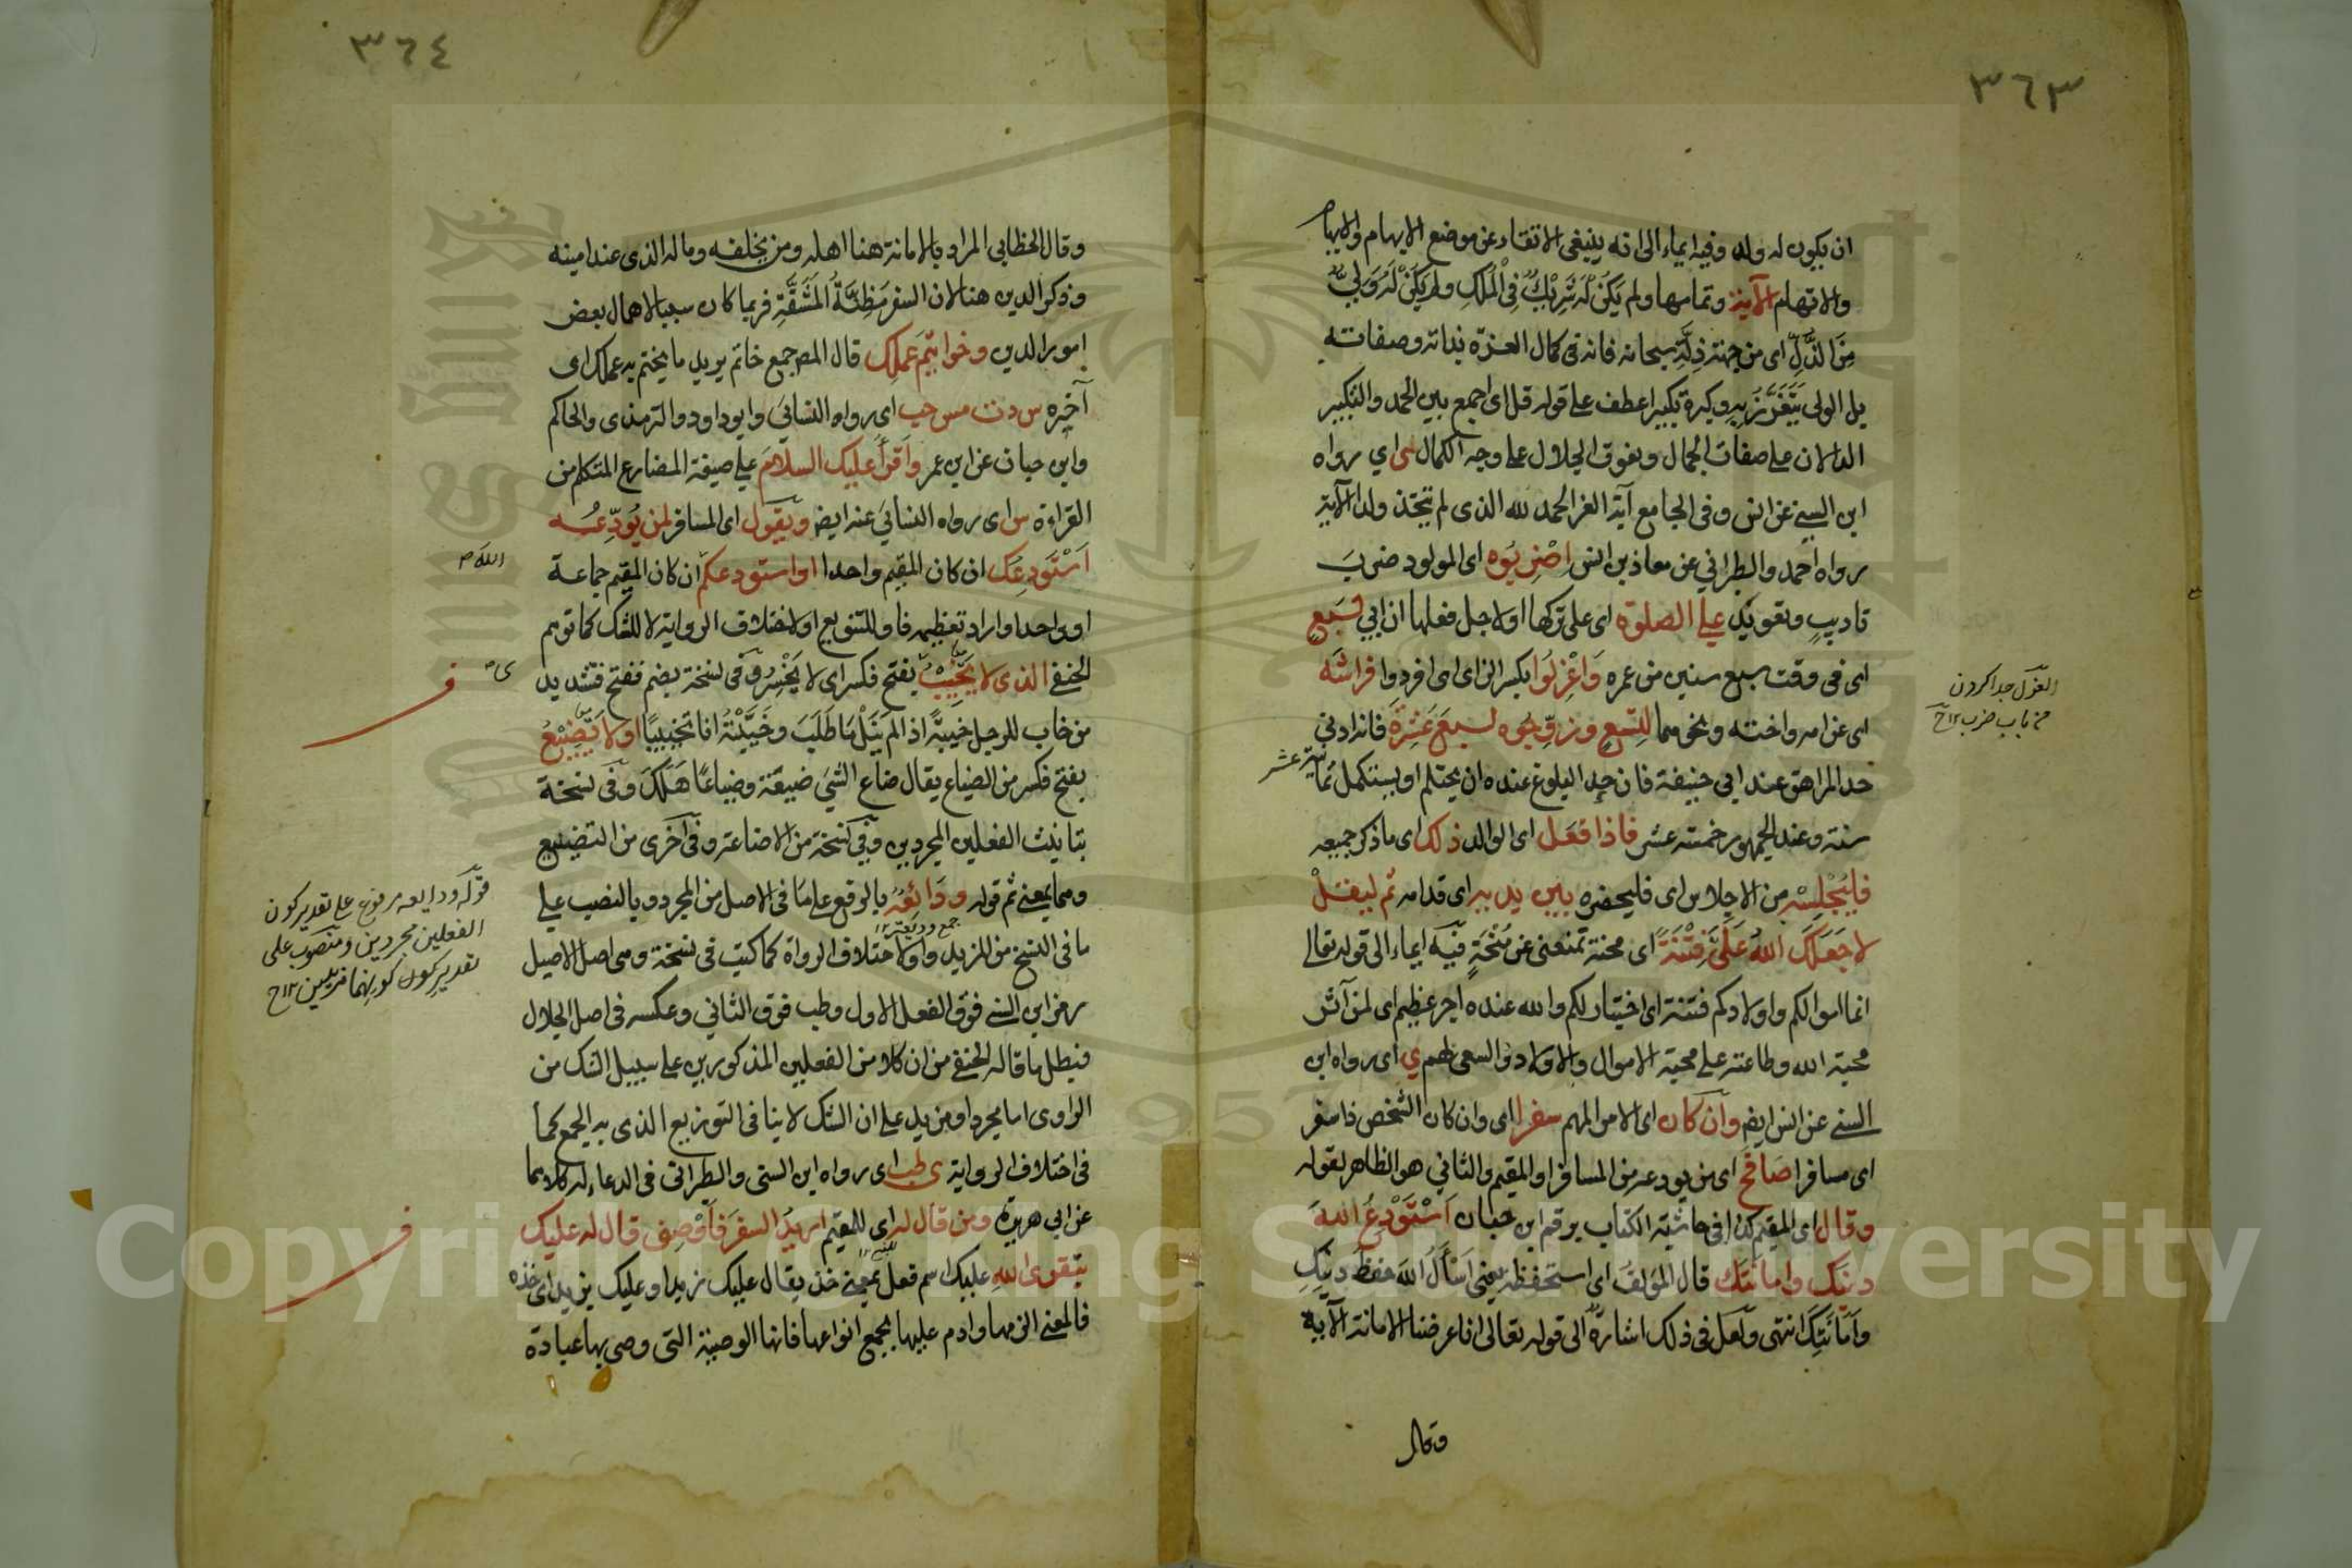 ٣٦٣
ان يكون له ولد وفيه ايماء الى انه ينبغى الاتقاء عن موضع الايهام والابهام
والاتهام الآية وتمامها ولم يكن له شريك فى الملك ولم يكن له ولي
من الذل اى من جهة ذلة سبحانه فانه فى كمال العزة بذاته وصفاته
بل الولى يتعزز به وكبره تكبيرا عطف على قوله قل اى اجمع بين الحمد والتكبير
الدالان على صفات الجمال ونعوت الجلال على وجه الكمال ى اي رواه
ابن السني عن انس وفى الجامع آية العز الحمد لله الذى لم يتخذ ولدا الآية
رواه احمد والطبراني عن معاذ بن انس اضربوه اى المولود ضرب
تاديب وتعويد على الصلوة اى على تركها او لاجل فعلها ان ابي لسبع
اى فى وقت سبع سنين من عمره واعزلوا بكسر الزاى اى افردوا فراشه
العزل جدا كردن
من باب ضرب ١٢ ح
اى عن امه واخته ونحوهما لتسع وزوجوه لسبع عشرة فانه ادنى
حد المراهق عند ابي حنيفة فان حد البلوغ عنده ان يحتلم او يستكمل ثمانية عشر
سنة وعند الجمهور خمسة عشر فاذا فعل اى الوالد ذلك اى ما ذكر جميعه
فليجلسه من الاجلاس اى فليحضره بين يديه اى قدامه ثم ليقل
لا جعلك الله علي فتنة اى محنة تمنعنى عن منحة فيه ايماء الى قوله تعالى
انما اموالكم واولادكم فتنة اى اختبار لكم والله عنده اجر عظيم اى لمن آثر
محبة الله وطاعته على محبة الاموال والاولاد والسعى لهم ي اى رواه ابن
السني عن انس ايضا وان كان اى الامر المهم سفرا اى وان كان الشخص ذا سفر
اى مسافرا صافح اى من يودعه من المسافر او المقيم والثاني هو الظاهر لقوله
وقال اى المقيم كذا فى حاشية الكتاب برقم ابن حبان استودع الله
دينك وامانتك قال المؤلف اى استحفظه يعنى اسأل الله حفظ دينك
وامانتك انتهى ولعل فى ذلك اشارة الى قوله تعالى انا عرضنا الامانة الآية
وقال
٣٦٤
وقال الخطابى المراد بالامانة هنا اهله ومن يخلفه وماله الذى عند امينه
وذكر الدين هنا لان السفر مظنة المشقة فربما كان سببا لاهمال بعض
امور الدين وخواتيم عملك قال المص جمع خاتم يريد ما يختم به عملك اى
آخره س د ت مس حب اى رواه النسائي وابو داود والترمذى والحاكم
وابن حبان عن ابن عمر واقرأ عليك السلام على صيغة المضارع المتكلم من
القراءة س اى رواه النسائي عنه ايضا ويقول اى المسافر لمن يودعه
استودعك ان كان المقيم واحدا او استودعكم ان كان المقيم جماعة
الله
او واحدا واراد تعظيمه فاو للتنويع او لاختلاف الرواية لا للشك كما توهم
الحنفي الذى لا يخيب بفتح فكسر اى لا يخسر وفى نسخة بضم ففتح فتشديد
من خاب للرجل خيبة اذا لم ينل ما طلب وخيبته انا تخييبا او لا تضيع
بفتح فكسر من الضياع يقال ضاع الشي ضيعة وضياعا هلك وفى نسخة
بتانيث الفعلين المجردين وفي نسخة من الاضاعة وفى اخرى من التضييع
وهما بمعنى ثم قوله ودائعه بالرفع على ما فى الاصل من المجرد وبالنصب على
جمع وديعة ١٢
قوله ودايعه مرفوع على تقدير كون
الفعلين مجردين ومنصوب على
تقدير كون كونهما مزيدين ١٢ ح
ما فى النسخ من المزيد واو لاختلاف الرواة كما كتب فى نسخة وهى اصل الاصيل
رمز ابن السني فوق الفعل الاول وطب فوق الثاني وعكسه فى اصل الجلال
فبطل ما قاله الحنفي من ان كلا من الفعلين المذكورين على سبيل الشك من
الراوى اما مجرد او مزيد على ان الشك لا ينافى التوزيع الذى به الجمع كما
فى اختلاف الرواية ى طب اى رواه ابن السني والطبرانى فى الدعاء له كلاهما
عن ابي هريرة ومن قال له اى للمقيم اريد السفر فاوصنى قال له عليك
بتقوى الله عليك اسم فعل بمعنى خذ يقال عليك زيدا وعليك بزيد اى خذه
فالمعنى الزمها وادم عليها بجميع انواعها فانها الوصية التى وصى بها عبادة
Copyright © King Saud University